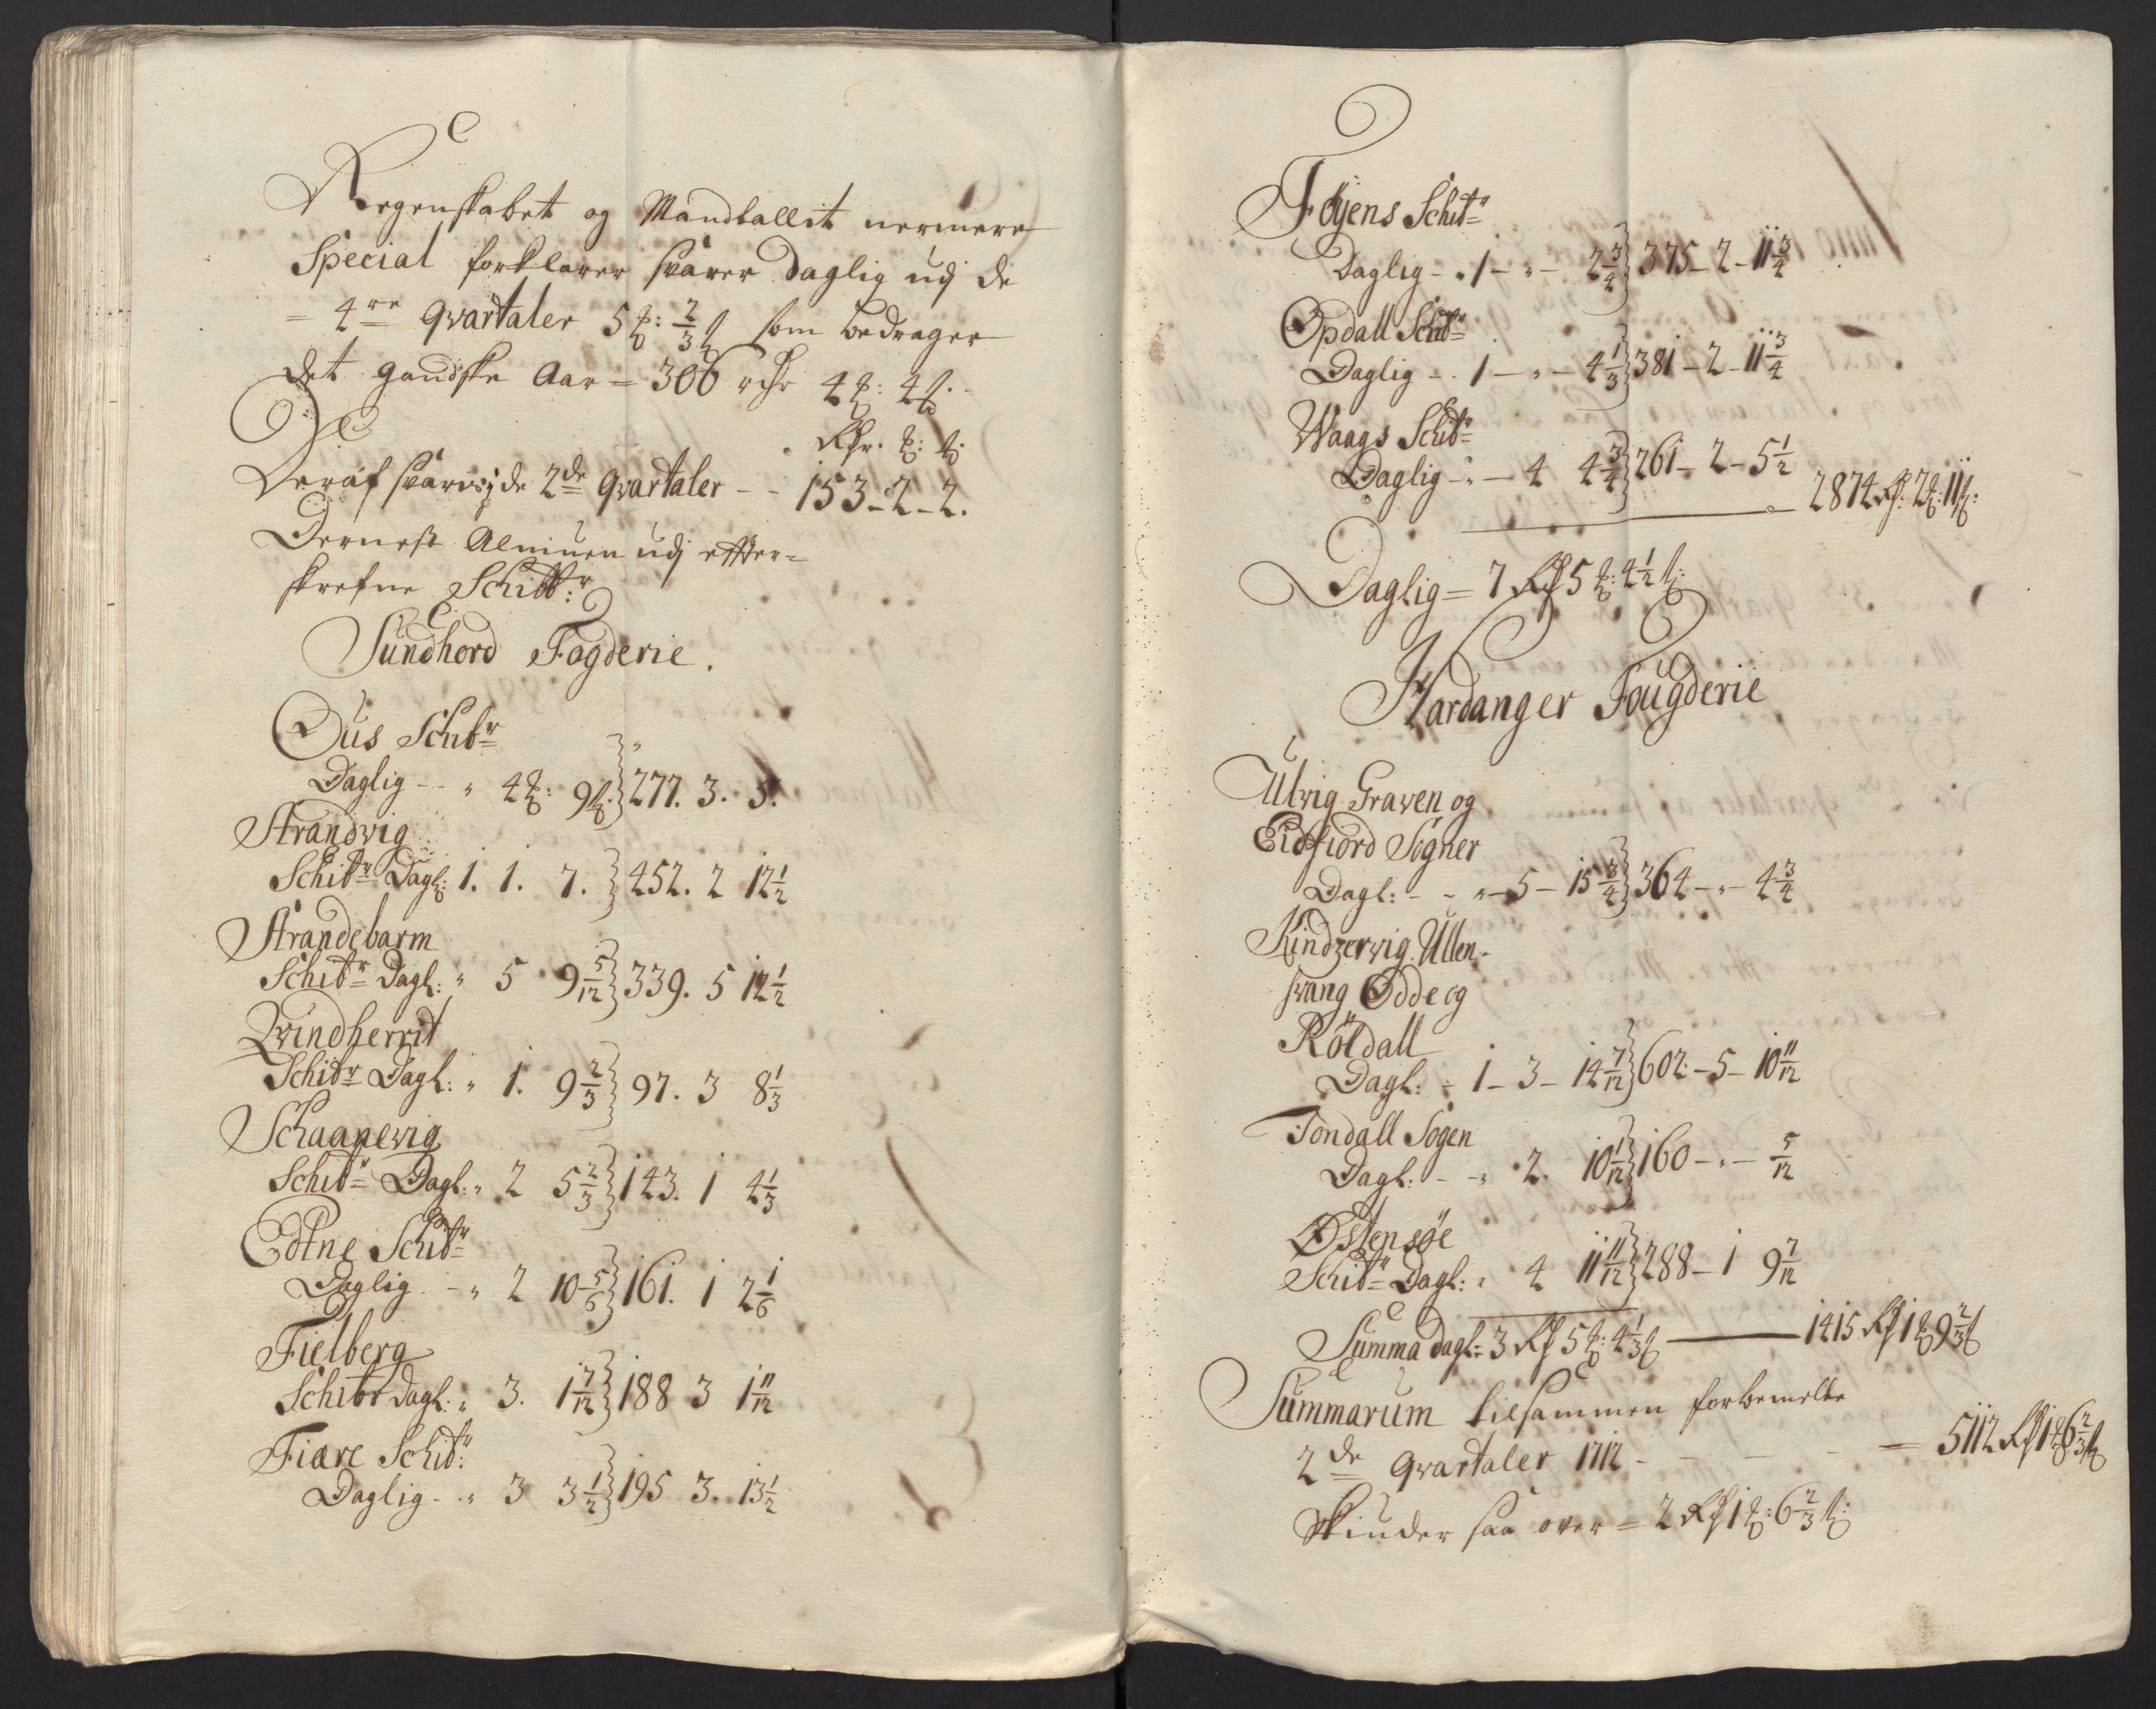 Regenskabet og Mandtallit nermere
Special forklarer svarer daglig udj de
4re qvartaler 5 ꝳ: 2/3 ß som bedrager
det gandske Aar = 306 rdr 4 ꝳ: 4 ß.
Rdr. ꝳ: ß:
Deraf svaris j de 2de qvartaler - - 153 - 2 - 2.
Dernest Almuen udj effter=
skrefne Schibbr:
Sundhord Fogderie.
Ous Schibr
Daglig - - " 4 ꝳ: 9 ß. 277. 3. 5.
Strandvig
Schibr Dagl: 1. 1. 7. 452. 2 12 1/2
Strandebarm
Schibr Dagl: " 5 9 5/12 339. 5 12 1/2
Qvindherrit
Schibr Dagl: " 1. 9 2/3 97. 3 8 1/3
Schaanevig
Schibr Dagl: " 2 5 2/3 143. 1 4 1/3
Edtne Schibr
Daglig. - " 2 10 5/6 161. 1 2 1/6
Fielberg
Schibr dagl: " 3. 1 7/12 188 3 1 11/12
Fiære Schibr:
Daglig - . " 3 3 1/2 195 3. 13 1/2
Føyens Schibr
Daglig - . 1 - " - 2 3/4 375 - 2 - 11 3/4
Opdall Schibr
Daglig - . 1 - " - 4 1/3 381 - 2 - 11 3/4
Waags Schibr
Daglig - " - 4 4 3/4 261 - 2 - 5 1/2
2874 Rd. 2 ꝳ: 11 ß:
Daglig = 7 Rd 5 ꝳ: 4 1/2 ß:
Hardanger Fougderie
Ulvig Graven og
Eidfiord Sogner
Dagl: - - " - 5 - 15 3/4 364 - " - 4 3/4
Kindzervig Ullen-
svang Odde og
Röldall
Dagl: - 1 - 3 - 14 7/12 602 - 5 - 10 11/12
Jondall Sogen
Dagl: - - " 2. 10 1/12 160 - " - 5/12
Østensøe
Schibr Dagl: " 4 11 11/12 288 - 1 9 7/12
Summa dagl: 3 Rd 5 ꝳ: 4 1/3 ß 1415 Rd 1 ꝳ 9 2/3 ß
Summarum tilsammen forbemelte
2de qvartaler 1712 - - - - = 5112 Rd 1 ꝳ 6 2/3 ß
skiuder saa over = 2 Rd 1 ꝳ: 6 2/3 ß: